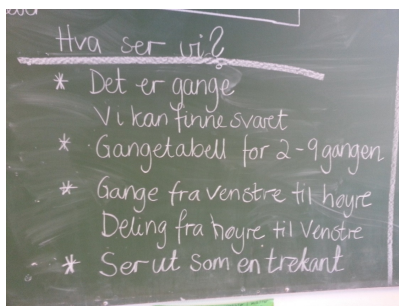 Hva ser vi?
* Det er gange
Vi kan finne svaret
* Gangetabell for 2-9 gangen
* Gange fra venstre til høyre
Deling fra høyre til venstre
* Ser ut som en trekant